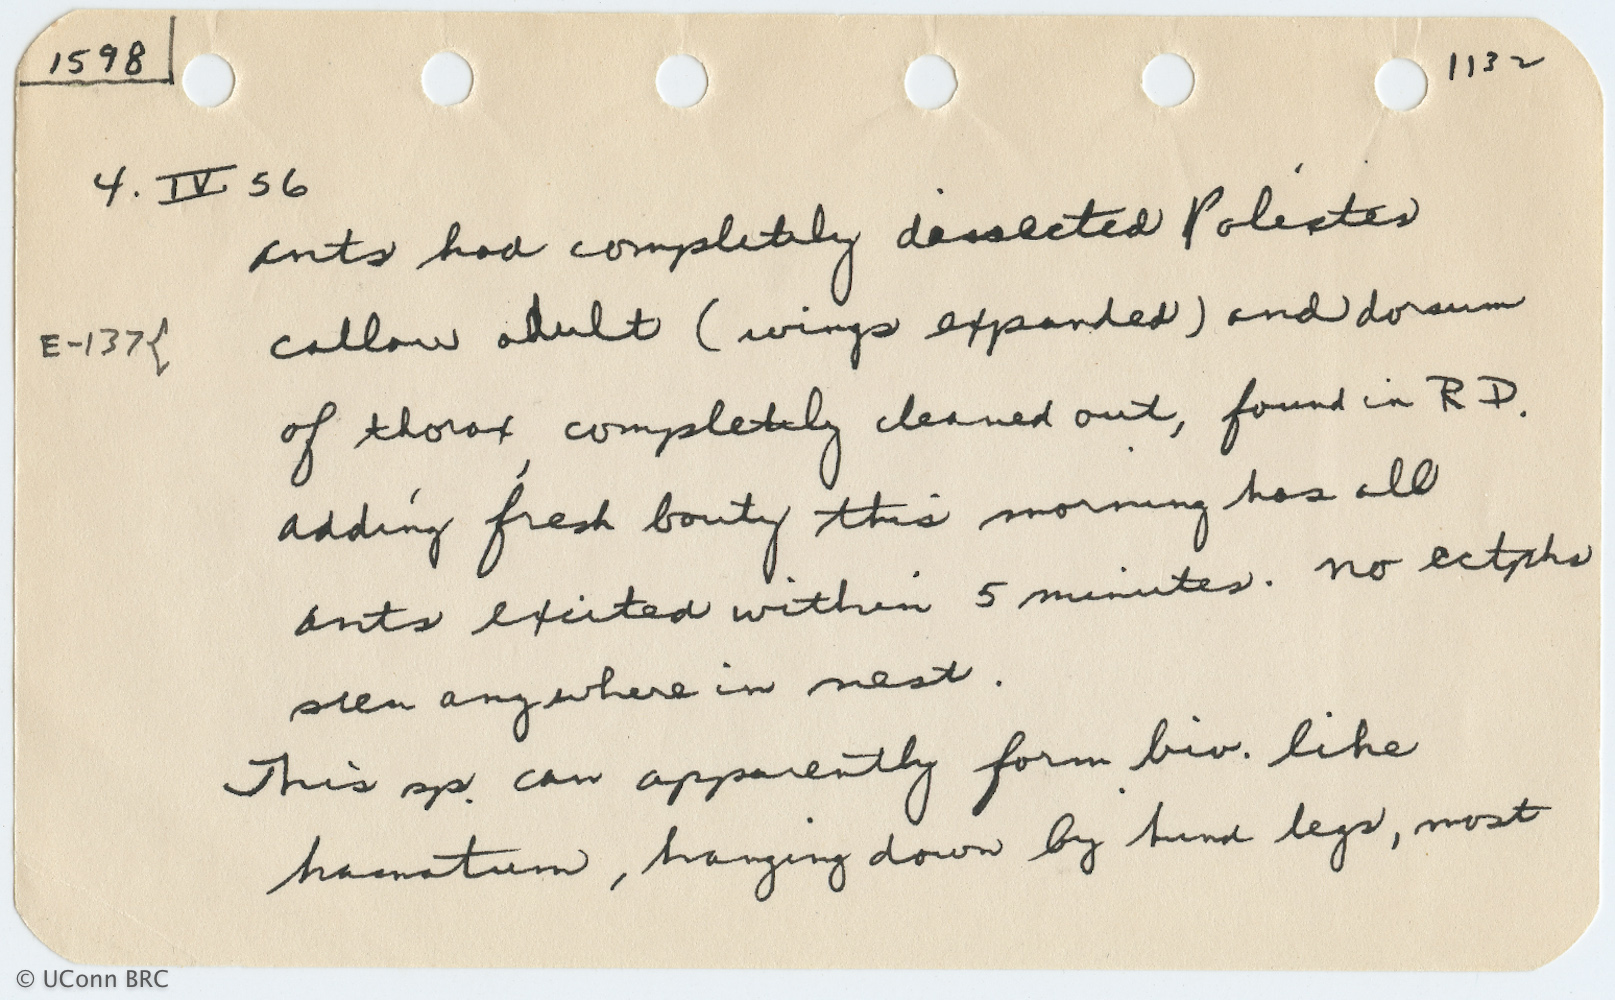 1598
1132
4. IV 56
ants had completely dissected Polistes
callow adult (wings expanded) and dorsum
E-137{
of thorax completely cleaned out, found in R D.
adding fresh booty this morning has all
ants excited within 5 minutes. no ectphs
seen anywhere in nest.
This sp. can apparently form biv. like
hamatum, hanging down by hind legs, most
© UConn BRC